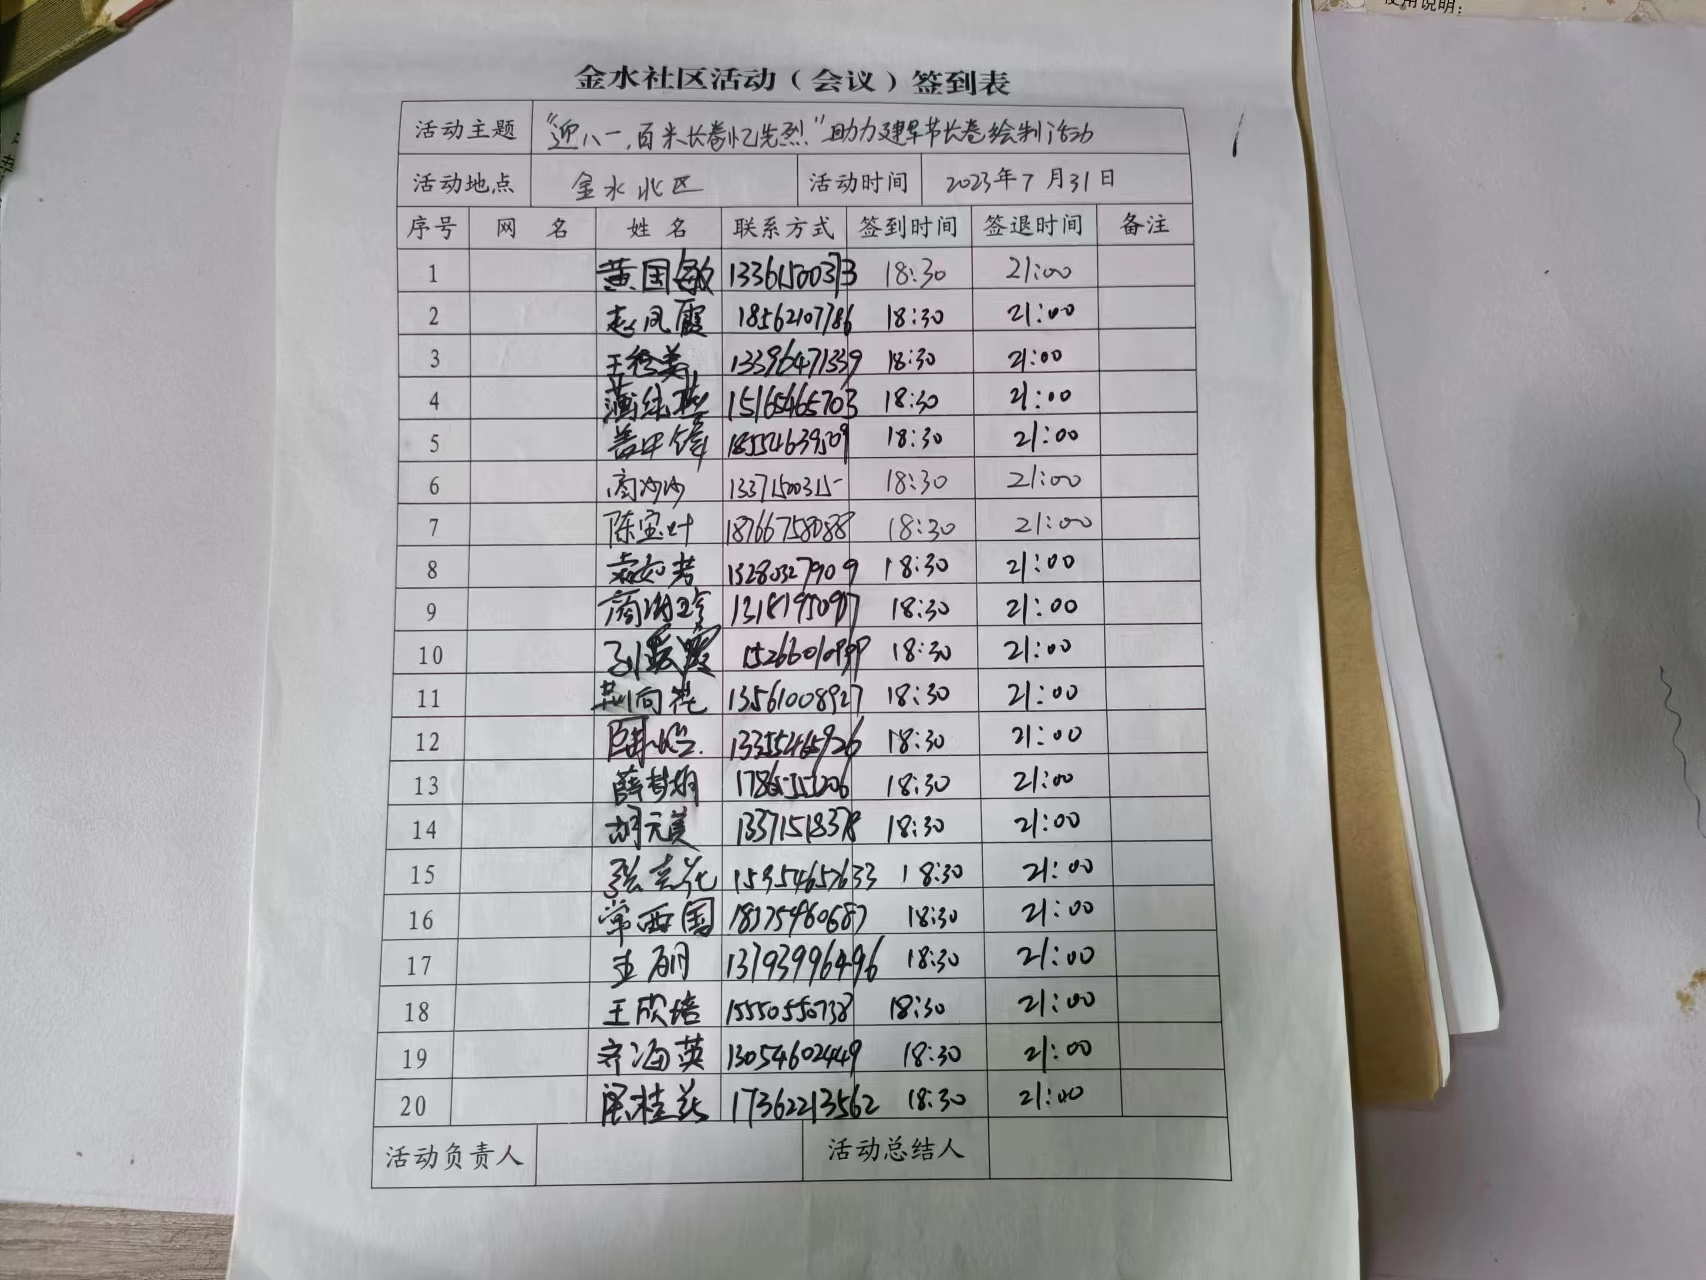 使用说明:
金水社区活动（会议）签到表
活动主题 "迎八一,百米长卷忆先烈"助力建军节长卷绘制活动
活动地点 金水北区 活动时间 2023年7月31日
序号 网 名 姓 名 联系方式 签到时间 签退时间 备注
1 黄国敏 18:30 21:00
2 赵凤霞 18562107786 18:30 21:00
3 13396471339 18:30 21:00
4 15165465703 18:30 21:00
5 18554639509 18:30 21:00
6 13371500315- 18:30 21:00
7 陈宝叶 18766758088 18:30 21:00
8 18:30 21:00
9 18:30 21:00
10 18:30 21:00
11 荆向花 13561008927 18:30 21:00
12 13355465926 18:30 21:00
13 薛梦娟 18:30 21:00
14 胡元美 13371518378 18:30 21:00
15 15954652633 18:30 21:00
16 常西国 18:30 21:00
17 13793996496 18:30 21:00
18 王欣培 15550550738 18:30 21:00
19 齐海英 13054602449 18:30 21:00
20 17362213562 18:30 21:00
活动负责人 活动总结人